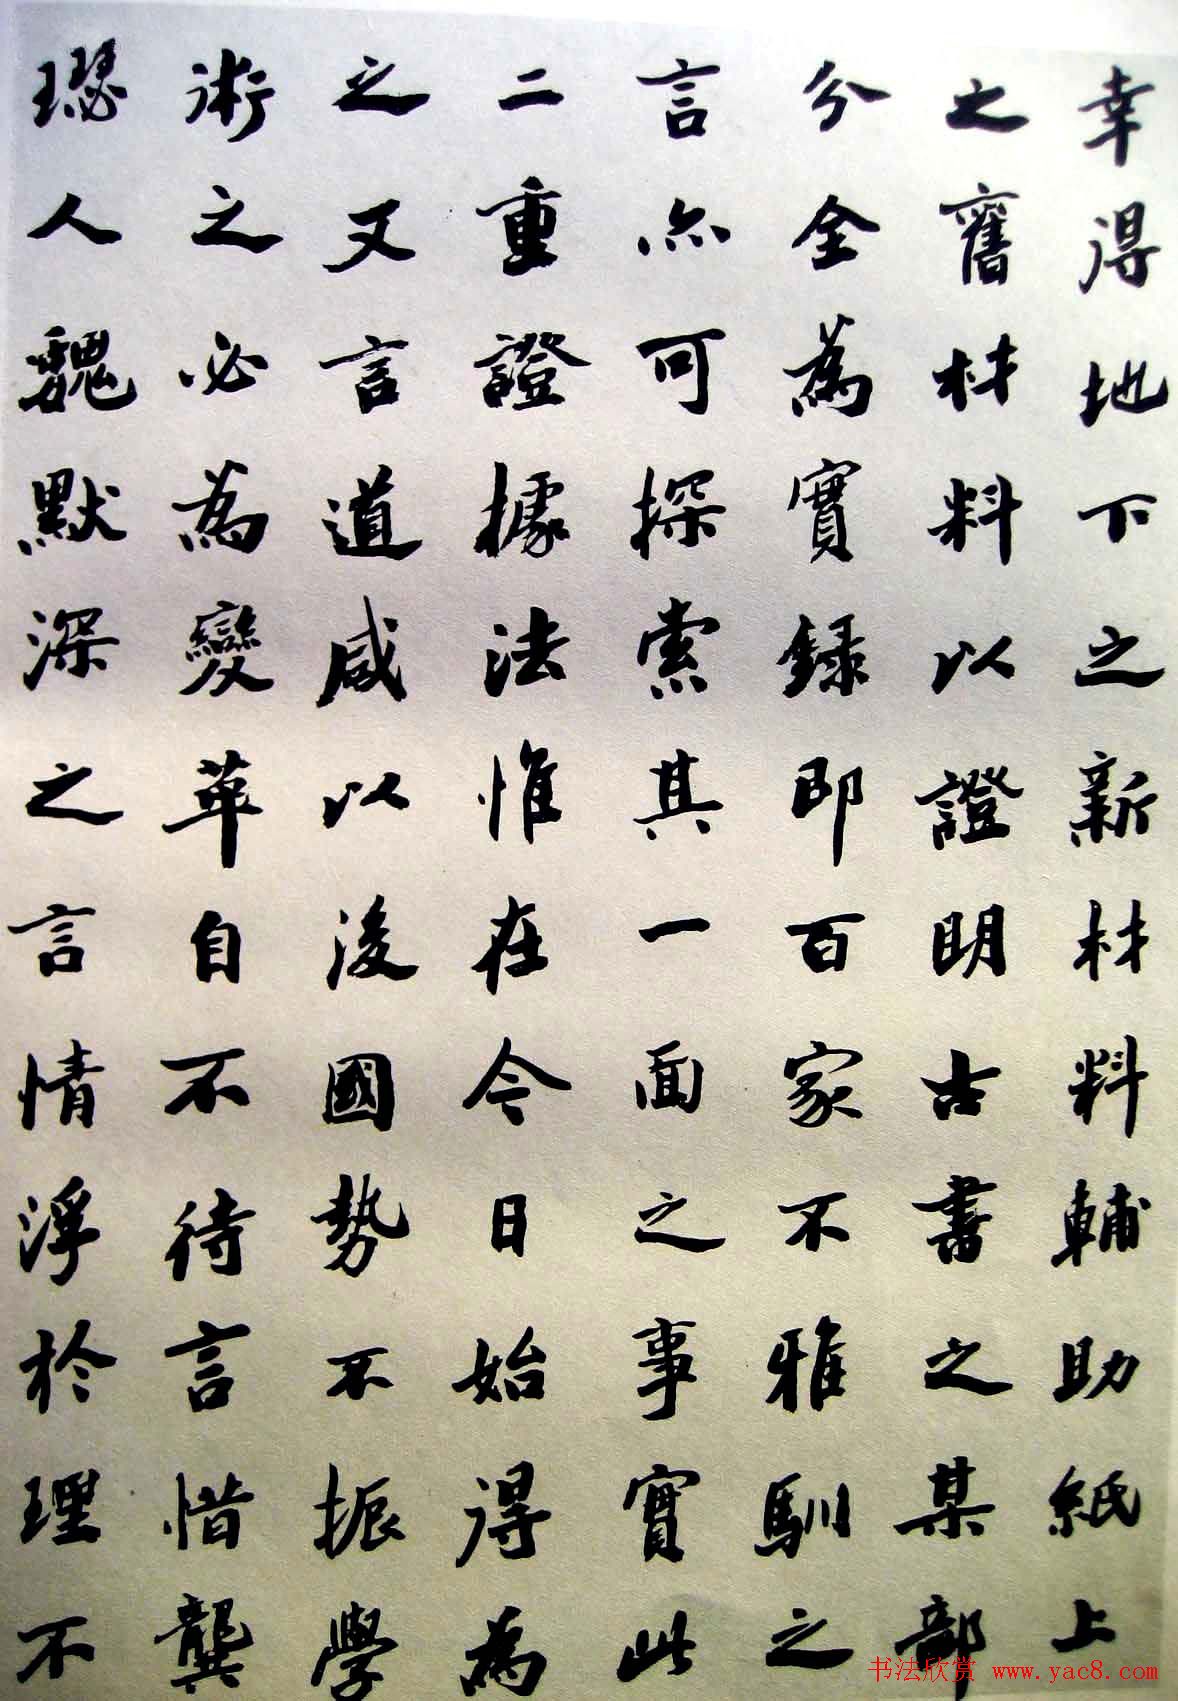 幸得地下之新材料輔助紙上
之舊材料以證明古書之某部
分全為實録即百家不雅馴之
言亦可探索其一面之事實此
二重證據法惟在今日始得為
之又言道咸以後國勢不振學
術之必為變革自不待言惜龔
璱人魏默深之言情浮於理不
书法欣赏 www.yac8.com